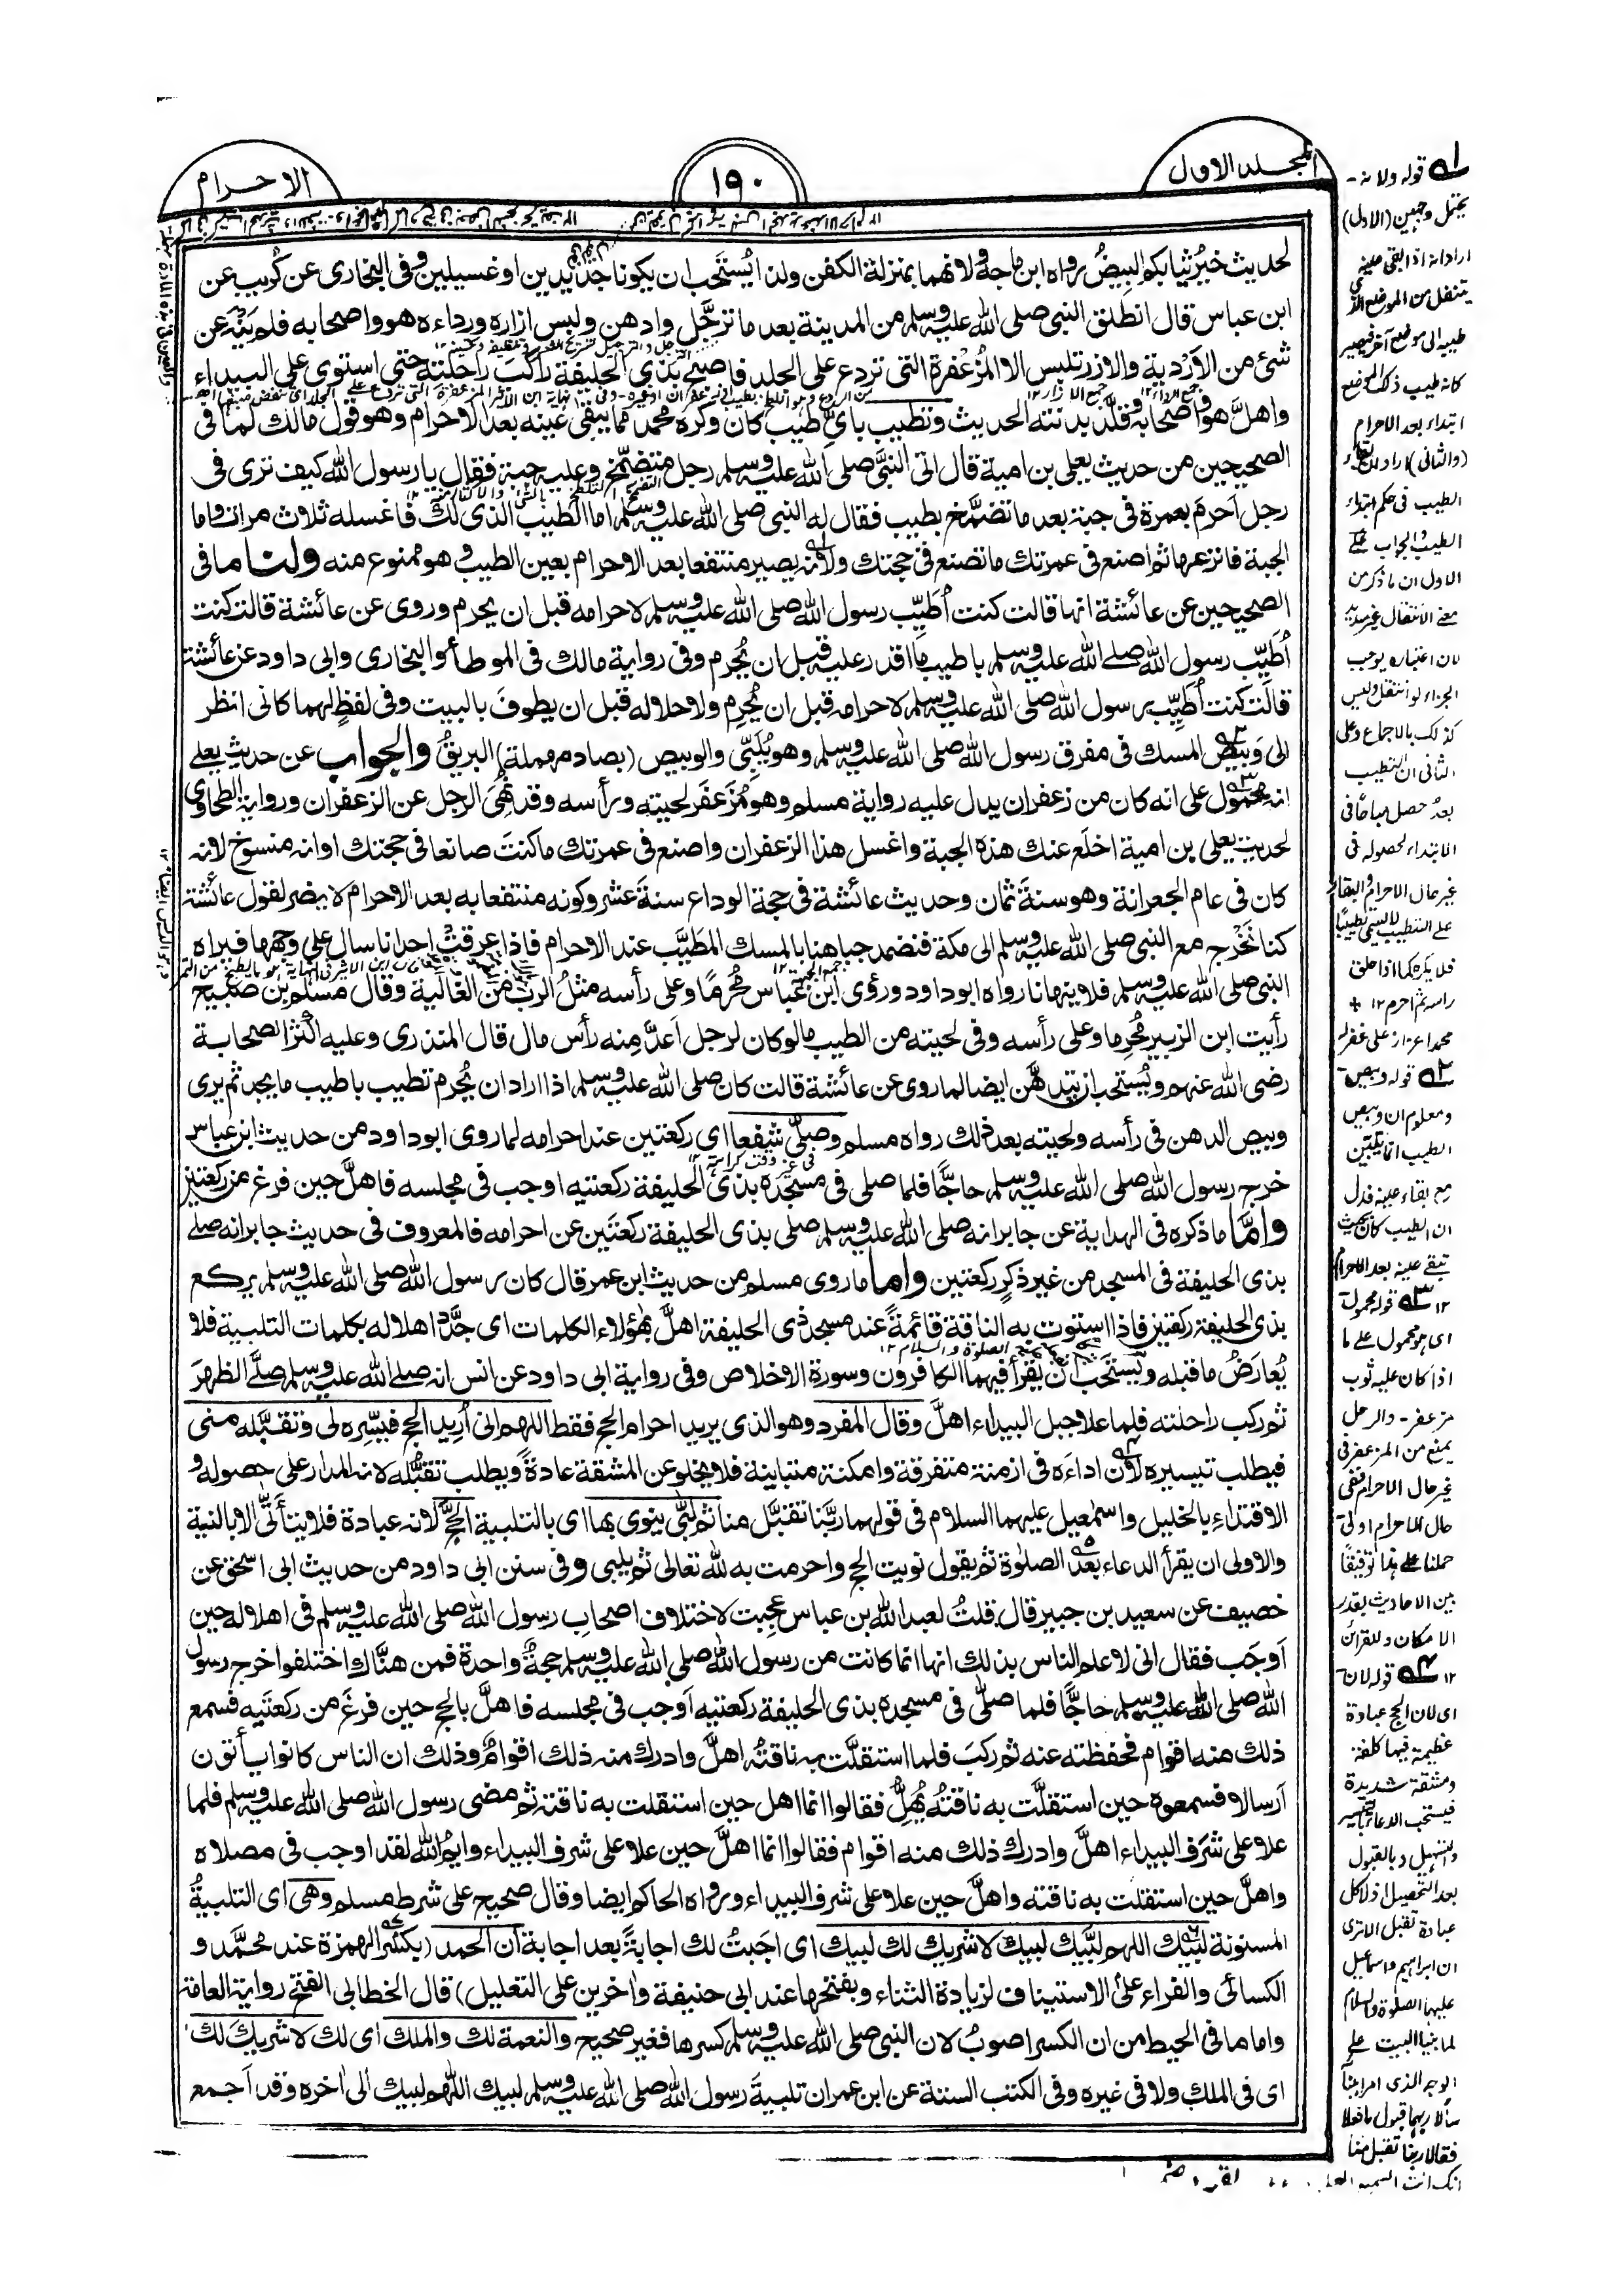 المجلد الاول
١٩٠
الاحرام
لحديث خيرُ ثيابكم البيضُ رواه ابن ماجة ولانهما بمنزلة الكفن ولذا يُستَحَب ان يكونا جديدين او غسيلين وفى البخارى عن كُريب عن
ابن عباس قال انطلق النبى صلى الله عليه وسلم من المدينة بعد ما ترجَّل وادهن ولبس ازاره ورداءه هو واصحابه فلم ينه عن
شئ من الاَرْدية والازر تلبس الا المُزَعْفرة التى تردع على الجلد فاصبح بذى الحليفة راكب راحلته حتى استوى على البيداء
واهلَّ هو واصحابه وقلَّد بدنته الحديث وتطيب باىِّ طيب كان وكره محمد مما يبقى عينه بعد الاحرام وهو قول مالك لما فى
الصحيحين من حديث يعلى بن امية قال اتى النبىَّ صلى الله عليه وسلم رجل متضمّخ وعليه جبة فقال يا رسول الله كيف ترى فى
رجل اَحرَم بعمرة فى جبة بعد ما تضمَّخ بطيب فقال له النبى صلى الله عليه وسلم اما الطيب الذى بك فاغسله ثلاث مرات واما
الجبة فانزعها ثم اصنع فى عمرتك ما تصنع فى حجتك ولانه يصير منتفعا بعد الاحرام بعين الطيب وهو ممنوع منه ولنا ما فى
الصحيحين عن عائشة انها قالت كنت اُطَيِّب رسول الله صلى الله عليه وسلم لاحرامه قبل ان يحرم وروى عن عائشة قالت كنت
اُطَيِّب رسول الله صلى الله عليه وسلم باطيب ما اقدر عليه قبل ان يُحرم وفى رواية مالك فى الموطأ والبخارى وابى داود عن عائشة
قالت كنت اُطَيِّب رسول الله صلى الله عليه وسلم لاحرامه قبل ان يُحرِم ولاحلاله قبل ان يطوفَ بالبيت وفى لفظٍ لهما كانى انظر
الى وَبيص المسك فى مفرق رسول الله صلى الله عليه وسلم وهو يُلَبّى والوبيص (بصاد مهملة) البريقُ والجواب عن حديث يعلى
انه محمول على انه كان من زعفران يدل عليه رواية مسلم وهو مُزَعفَر لحيته ورأسه وقد نُهِىَ الرجل عن الزعفران ورواية الطحاوى
لحديث يعلى بن امية اخلَع عنك هذه الجبة واغسل هذا الزعفران واصنع فى عمرتك ما كنتَ صانعا فى حجتك او انه منسوخ لانه
كان فى عام الجعرانة وهو سنةَ ثمان وحديث عائشة فى حجة الوداع سنةَ عشر وكونه منتفعا به بعد الاحرام لا يضر لقول عائشة
كنا نَخْرج مع النبى صلى الله عليه وسلم الى مكة فنضمد جباهنا بالمسك المطَيَّب عند الاحرام فاذا عرقت احدانا سال على وجهها فيراه
النبى صلى الله عليه وسلم فلا ينهانا رواه ابو داود ورؤى ابن عباس مُحرِمًا وعلى رأسه مثلُ الربّ من الغالية وقال مسلم بن صُبيح
رأيت ابن الزبير مُحرِما وعلى رأسه وفى لحيته من الطيب ما لو كان لرجل اَعدَّ منه رأس مال قال المنذرى وعليه اكثر الصحابة
رضى الله عنهم ويُستحب ان يدهن ايضا لما روى عن عائشة قالت كان صلى الله عليه وسلم اذا اراد ان يُحرم تطيب باطيب ما يجد ثم يرى
وبيص الدهن فى رأسه ولحيته بعد ذلك رواه مسلم وصلّى شفعا اى ركعتين عند احرامه لما روى ابو داود من حديث ابن عباس
خرج رسول الله صلى الله عليه وسلم حاجًّا فلما صلى فى مسجده بذى الحليفة ركعتيه اوجب فى مجلسه فاهلَّ حين فرغ من ركعتيه
وامّا ما ذكره فى الهداية عن جابر انه صلى الله عليه وسلم صلى بذى الحليفة ركعتَين عن احرامه فالمعروف فى حديث جابر انه صلى
بذى الحليفة فى المسجد من غير ذكرِ ركعتين واما ما روى مسلم من حديث ابن عمر قال كان رسول الله صلى الله عليه وسلم يركع
بذى الحليفة ركعتين فاذا استوت به الناقة قائمةً عند مسجد ذى الحليفة اهلَّ بهؤلاء الكلمات اى جدَّد اهلاله بكلمات التلبية فلا
يُعارَضُ ما قبله ويُستَحَب ان يقرأ فيهما الكافرون وسورة الاخلاص وفى رواية ابى داود عن انس انه صلى الله عليه وسلم صلَّى الظهرَ
ثم ركب راحلته فلما علا جبل البيداء اهلَّ وقال المفرد وهو الذى يريد احرام الحج فقط اللهم انى اُريد الحج فيسِّره لى وتقبَّله منى
فيطلب تيسيره لان اداءه فى ازمنة متفرقة وامكنة متباينة فلا يخلو عن المشقة عادةً ويطلب تقبُّله لانه المدار على حصوله و
الاقتداءِ بالخليل واسمٰعيل عليهما السلام فى قولهما ربَّنا تقبَّل منا ثم لَبّى ينوى بها اى بالتلبية الحجَّ لانه عبادة فلا يتأَتّى الا بالنية
والاولى ان يقرأ الدعاء بعد الصلوة ثم يقول نويت الحج واحرمت به لله تعالى ثم يلبى وفى سنن ابى داود من حديث ابى اسحٰق عن
خصيف عن سعيد بن جبير قال قلتُ لعبد الله بن عباس عجِبت لاختلاف اصحابِ رسول الله صلى الله عليه وسلم فى اهلاله حين
اَوجَب فقال انى لاعلم الناس بذلك انها انما كانت من رسول الله صلى الله عليه وسلم حجةٌ واحدة فمن هناك اختلفوا خرج رسول
الله صلى الله عليه وسلم حاجًّا فلما صلّى فى مسجده بذى الحليفة ركعتيه اَوجب فى مجلسه فاهلَّ بالحج حين فرغَ من ركعتَيه فسمع
ذلك منه اقوام فحفظته عنه ثم ركبَ فلما استقلَّت به ناقتُه اهلَّ وادرك منه ذلك اقوامٌ وذلك ان الناس كانوا يأتون
اَرسالا فسمعوه حين استقلَّت به ناقتُه يُهِلُّ فقالوا انما اهل حين استقلت به ناقته ثم مضى رسول الله صلى الله عليه وسلم فلما
علا على شَرَف البيداء اهلَّ وادرك ذلك منه اقوام فقالوا انما اهلَّ حين علا على شرف البيداء وايمُ الله لقد اوجب فى مصلاه
واهلَّ حين استقلت به ناقته واهلَّ حين علا على شرف البيداء ورواه الحاكم ايضا وقال صحيح على شرط مسلم وهى اى التلبيةُ
المسنونة لبيك اللهم لبَّيك لبيك لا شريك لك لبيك اى اجَبتُ لك اجابةً بعد اجابة ان الحمد (بكسر الهمزة عند محمَّد و
الكسائى والفراء على الاستيناف لزيادة الثناء وبفتحها عند ابى حنيفة واٰخرين على التعليل) قال الخطابى الفتح رواية العامة
واما ما فى المحيط من ان الكسر اصوبُ لان النبى صلى الله عليه وسلم كسرها فغير صحيح والنعمة لك والملك اى لك لا شريكَ لك
اى فى الملك ولا فى غيره وفى الكتب الستة عن ابن عمر ان تلبيةَ رسول الله صلى الله عليه وسلم لبيك اللهم لبيك الى اٰخره وقد اَجمع
قوله ولانه
يحتمل وجهين (الاول)
اراد انه اذا بقى عينه
ينتقل من الموضع الذى
طيبه الى موضع آخر فيصير
كانه طيب ذلك الموضع
ابتداء بعد الاحرام
(والثانى) اراد ان بقاء
الطيب فى حكم ابتداء
الطيب والجواب عن
الاول ان ما ذكر من
معنى الانتقال غير سديد
لان اعتباره يوجب
الجزاء لو انتقل وليس
كذلك بالاجماع وعلى
الثانى ان التطيب
بعد حصل مباحا فى
الابتداء لحصوله فى
غير حال الاحرام والبقاء
على التطيب لا يسمى تطييبا
فلا يكره كما اذا حلق
راسه ثم احرم ١٢
محمد اعزاز على غفرله
قوله وبيص
ومعلوم ان وبيص
الطيب انما يتبين
مع بقاء عينه فدل
ان الطيب كان بحيث
تبقى عينه بعد الاحرام
١٢ قوله محمول
اى هو محمول على ما
اذا كان عليه ثوب
مزعفر - والرجل
يمنع من المزعفر فى
غير حال الاحرام ففى
حال الاحرام اولى
حملناه على هذا توفيقا
بين الاحاديث بقدر
الامكان وللقرائن
١٢ قوله لان
اى لان الحج عبادة
عظيمة فيها كلفة
ومشقة شديدة
فيستحب الدعاء بالتيسير
والتسهيل وبالقبول
بعد التحصيل اذ لا كل
عبادة تقبل الا ترى
ان ابراهيم واسماعيل
عليهما الصلوة والسلام
لما بنيا البيت على
الوجه الذى امرا ببناءه
سألا ربهما قبول ما فعلا
فقالا ربنا تقبل منا
انك انت السميع العليم